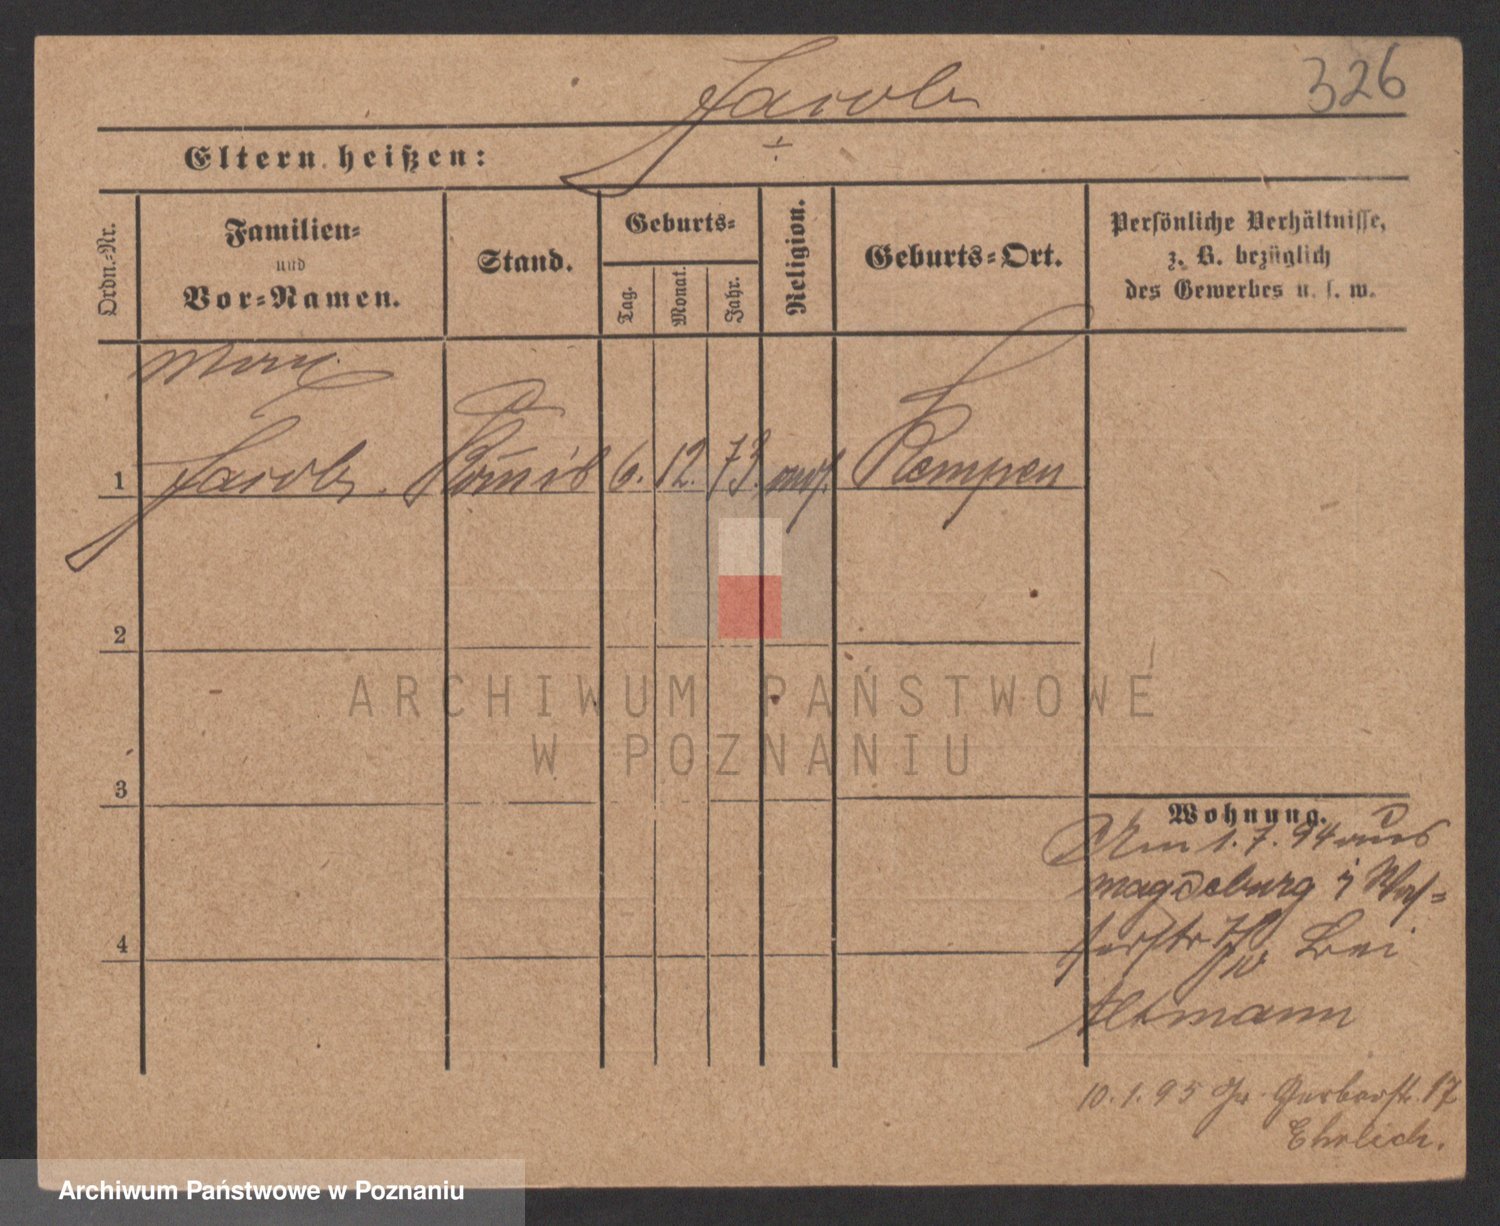 Jacob
326
Eltern heißen:
÷
Ordn.-Nr.
Familien-
und
Vor-Namen.
Stand.
Geburts-
Tag.
Monat.
Jahr.
Religion.
Geburts-Ort.
Persönliche Verhältnisse,
z. B. bezüglich
des Gewerbes u. s. w.
Max
1 Jacob. 6. 12. 73. mos. Kempen
2
ARCHIWUM PAŃSTWOWE
W POZNANIU
3
Wohnung.
Am 1. 7. 94 aus
Magdeburg i Was-
serstr bei
Altmann
4
10. 1. 95 Gr. Gerberstr. 17
Ehrlich.
Archiwum Państwowe w Poznaniu